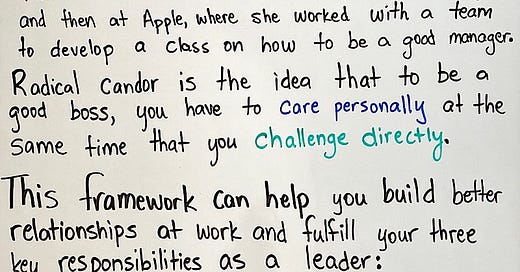 and then at Apple, where she worked with a team
to develop a class on how to be a good manager.
Radical Candor is the idea that to be a
good boss, you have to care personally at the
same time that you challenge directly.
This framework can help you build better
relationships at work and fulfill your three
key responsibilities as a leader: